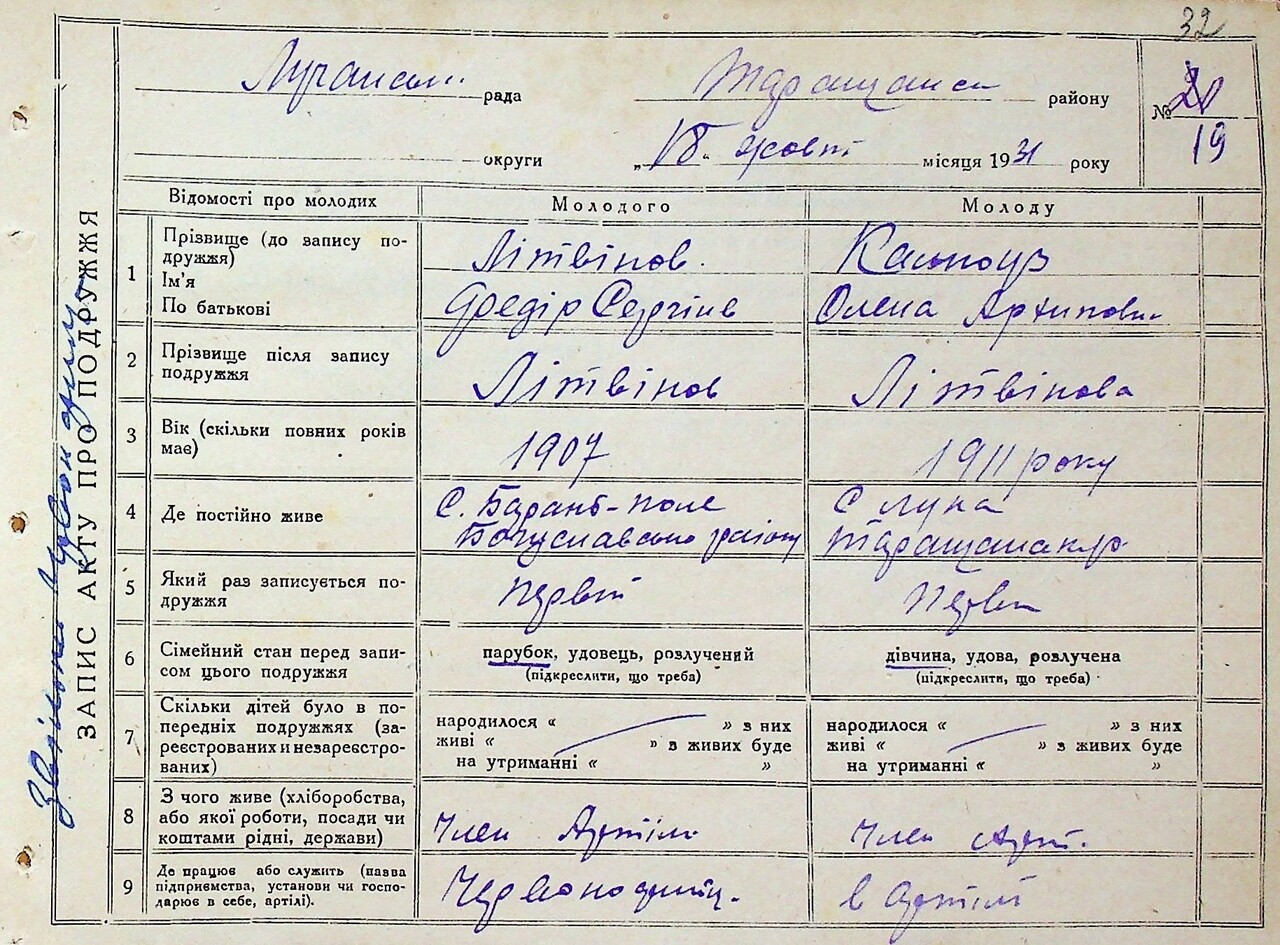 32
рада
району
№ 20
19
округи
„18“ жовт місяця 1931 року
ЗАПИС АКТУ ПРО ПОДРУЖЖЯ
Відомості про молодих Молодого Молоду
1 Прізвище (до запису по-
дружжя)
Ім'я
По батькові
Літвінов
Федір Сергіїв
Олена Архиповн
2 Прізвище після запису
подружжя
Літвінов Літвінова
3 Вік (скільки повних років
має)
1907 1911 року
4 Де постійно живе
С. Барань-поле
Богуславсько району
С Лука
5 Який раз записується по-
дружжя
6 Сімейний стан перед запи-
сом цього подружжя
парубок, удовець, розлучений
(підкреслити, що треба)
дівчина, удова, розлучена
(підкреслити, що треба)
7 Скільки дітей було в по-
передніх подружжях (за-
реєстрованих и незареєстро-
ваних)
народилося « » з них
живі « » з живих буде
на утриманні « »
народилося « » з них
живі « » з живих буде
на утриманні « »
8 З чого живе (хліборобства,
або якої роботи, посади чи
коштами рідні, держави)
Член Артіл
Член Арт.
9 Де працює або служить (назва
підприємства, установи чи госпо-
дарює в себе, артілі).
в Артіл